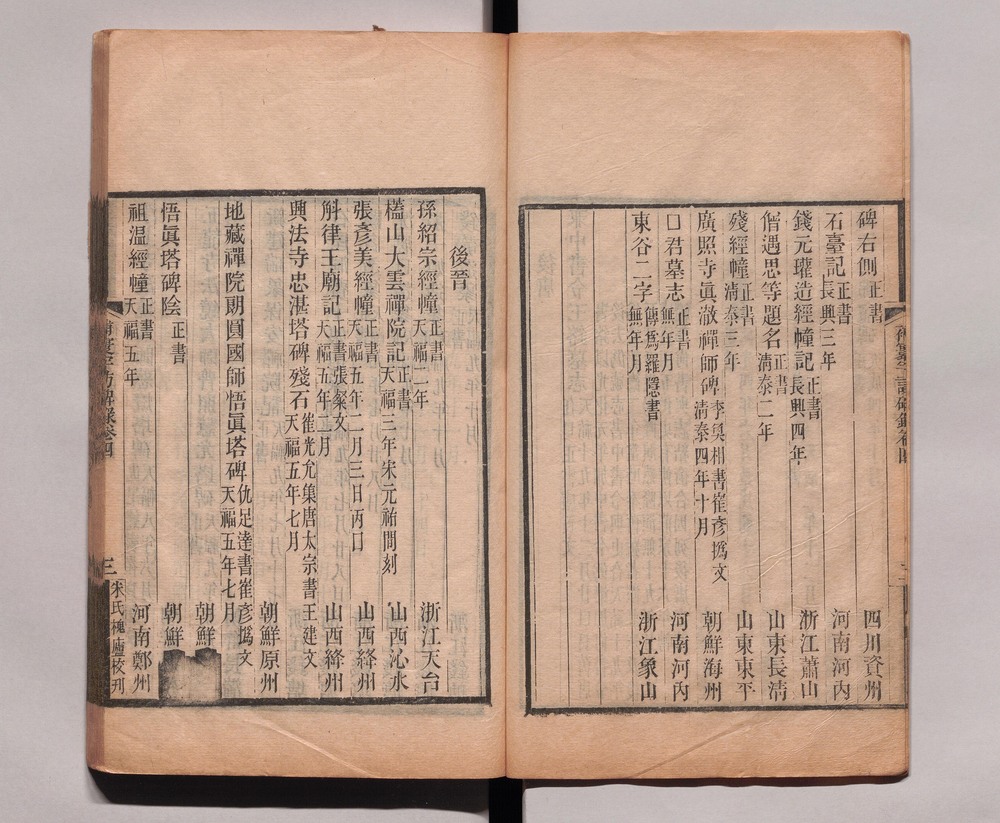 碑右側 正書 四川資州
石臺記 正書 長興三年 河南河内
錢元瓘造經幢記 正書 長興四年 浙江蕭山
僧遇思等題名 正書 清泰二年 山東長清
殘經幢 正書 清泰三年 山東東平
廣照寺眞澈禪師碑 李奐相書崔彥撝文 清泰四年十月 朝鮮海州
口君墓志 正書 無年月 河南河内
東谷二字 傳爲羅隱書 無年月 浙江象山
後晉
孫紹宗經幢 正書 天福二年 浙江天台
榼山大雲禪院記 正書 天福三年宋元祐間刻 山西沁水
張彥美經幢 正書 天福五年二月三日丙口 山西絳州
斛律王廟記 正書張粲文 天福五年二月 山西絳州
興法寺忠湛塔碑殘石 崔光允集唐太宗書王建文 天福五年七月
朝鮮原州
地藏禪院朗圓國師悟眞塔碑 仇足達書崔彥撝文 天福五年七月
朝鮮
悟眞塔碑陰 正書 朝鮮
祖温經幢 正書 天福五年 河南鄭州
訪碑錄卷四
三
朱氏槐廬校刋